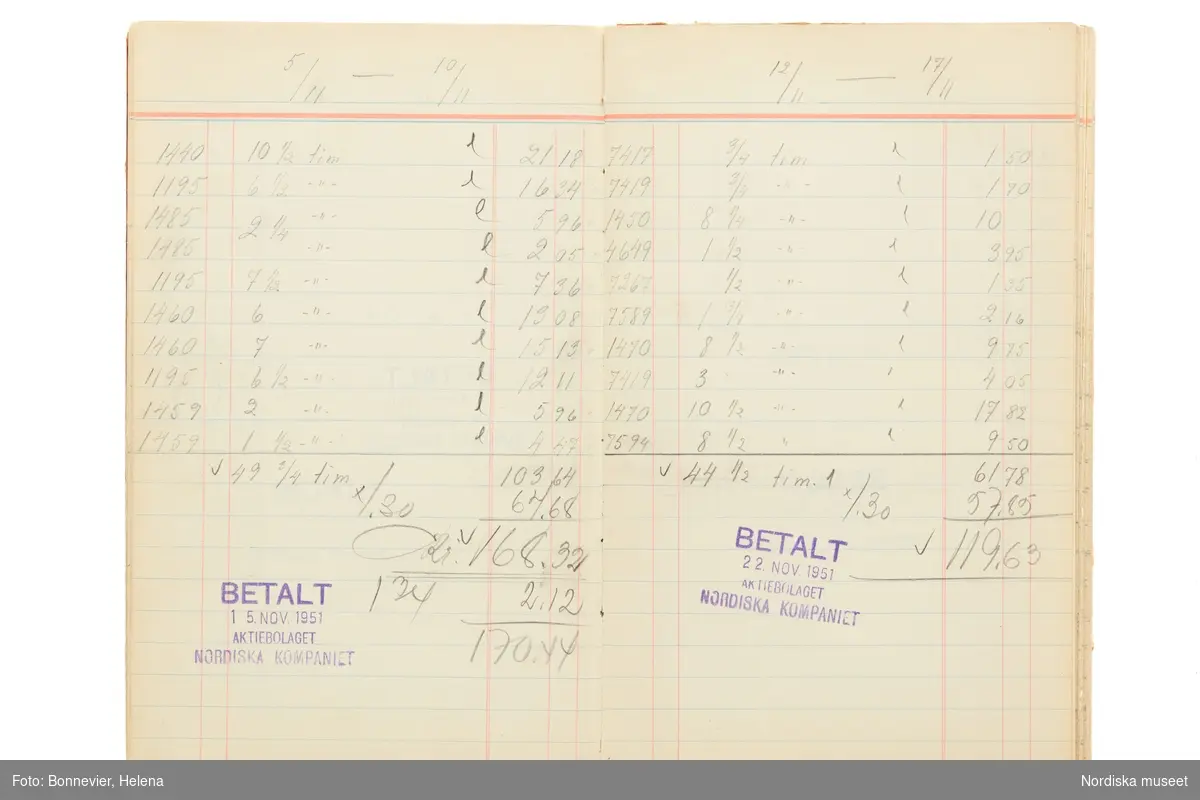 5/11 — 10/11
1440 10 1/2 tim l 21 18
1195 6 1/2 -"- l 16 34
1485 2 1/4 -"- l 5 96
1485 -"- l 2 05
1195 7 1/2 -"- l 7 36
1460 6 -"- l 13 08
1460 7 -"- l 15 13
1195 6 1/2 -"- l 12 11
1459 2 -"- l 5 96
1459 1 1/2 -"- l 4 47
√ 49 3/4 tim 103,64
x/1.30 67,68
√ 168.32
134 2.12
170.44
BETALT
15. NOV. 1951
AKTIEBOLAGET
NORDISKA KOMPANIET
12/11 — 17/11
7417 3/4 tim l 1 50
7419 3/4 -"- l 1 70
1450 8 -"- l 10
4649 1 1/2 -"- l 3 95
7267 1/2 -"- l 1 35
7589 1 -"- l 2 16
1470 8 1/2 -"- l 9 75
7419 3 -"- l 4 05
1470 10 1/2 -"- l 17 82
7594 8 1/2 " l 9 50
√ 44 1/2 tim. 61 78
x/1.30 57,85
√ 119,63
BETALT
22. NOV. 1951
AKTIEBOLAGET
NORDISKA KOMPANIET
Foto: Bonnevier, Helena
Nordiska museet